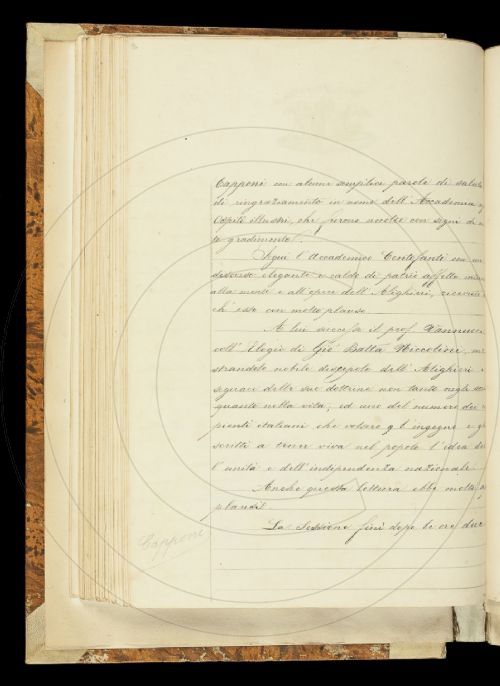 Capponi con alcune semplice parole di saluto
di ringraziamento in nome dell'Accademia
Ospiti illustri, che furono accolte con segni di
te gradimento.
Seguì l'Accademico Centofanti con un
discorso elegante e caldo di patrio affetto
alla mente e all'opere dell'Alighieri, ricevuto
ch'esso con molto plauso
A lui successe il prof. Vannucci
coll'Elogio di Gio Batta Niccolini,
strandolo nobile discepolo dell'Alighieri
seguace delle sue dottrine non tanto negli
quanto nella vita, ed uno del numero dei
pienti italiani che volsero l'ingegno e
scritti a tener viva nel popolo l'idea
l'unità e dell'independenza nazionale.
Anche questa lettura ebbe molti
plausi.
La Sessione finì dopo le ore due
Capponi